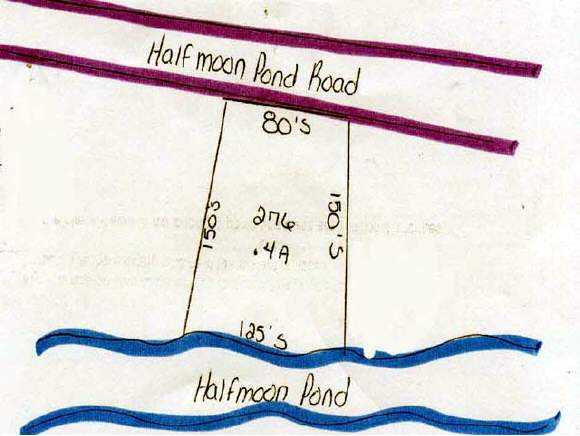 Halfmoon Pond Road
80'S
150'S
276
150'S
.4A
125'S
Halfmoon Pond